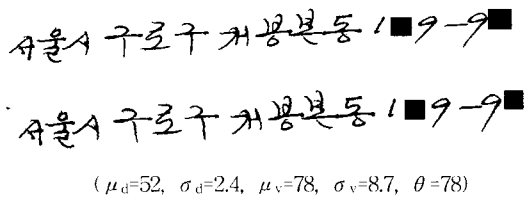 서울시 구로구 개봉본동 1■9-9■
서울시 구로구 개봉본동 1■9-9■
(μd=52, σd=2.4, μv=78, σv=8.7, θ=78)